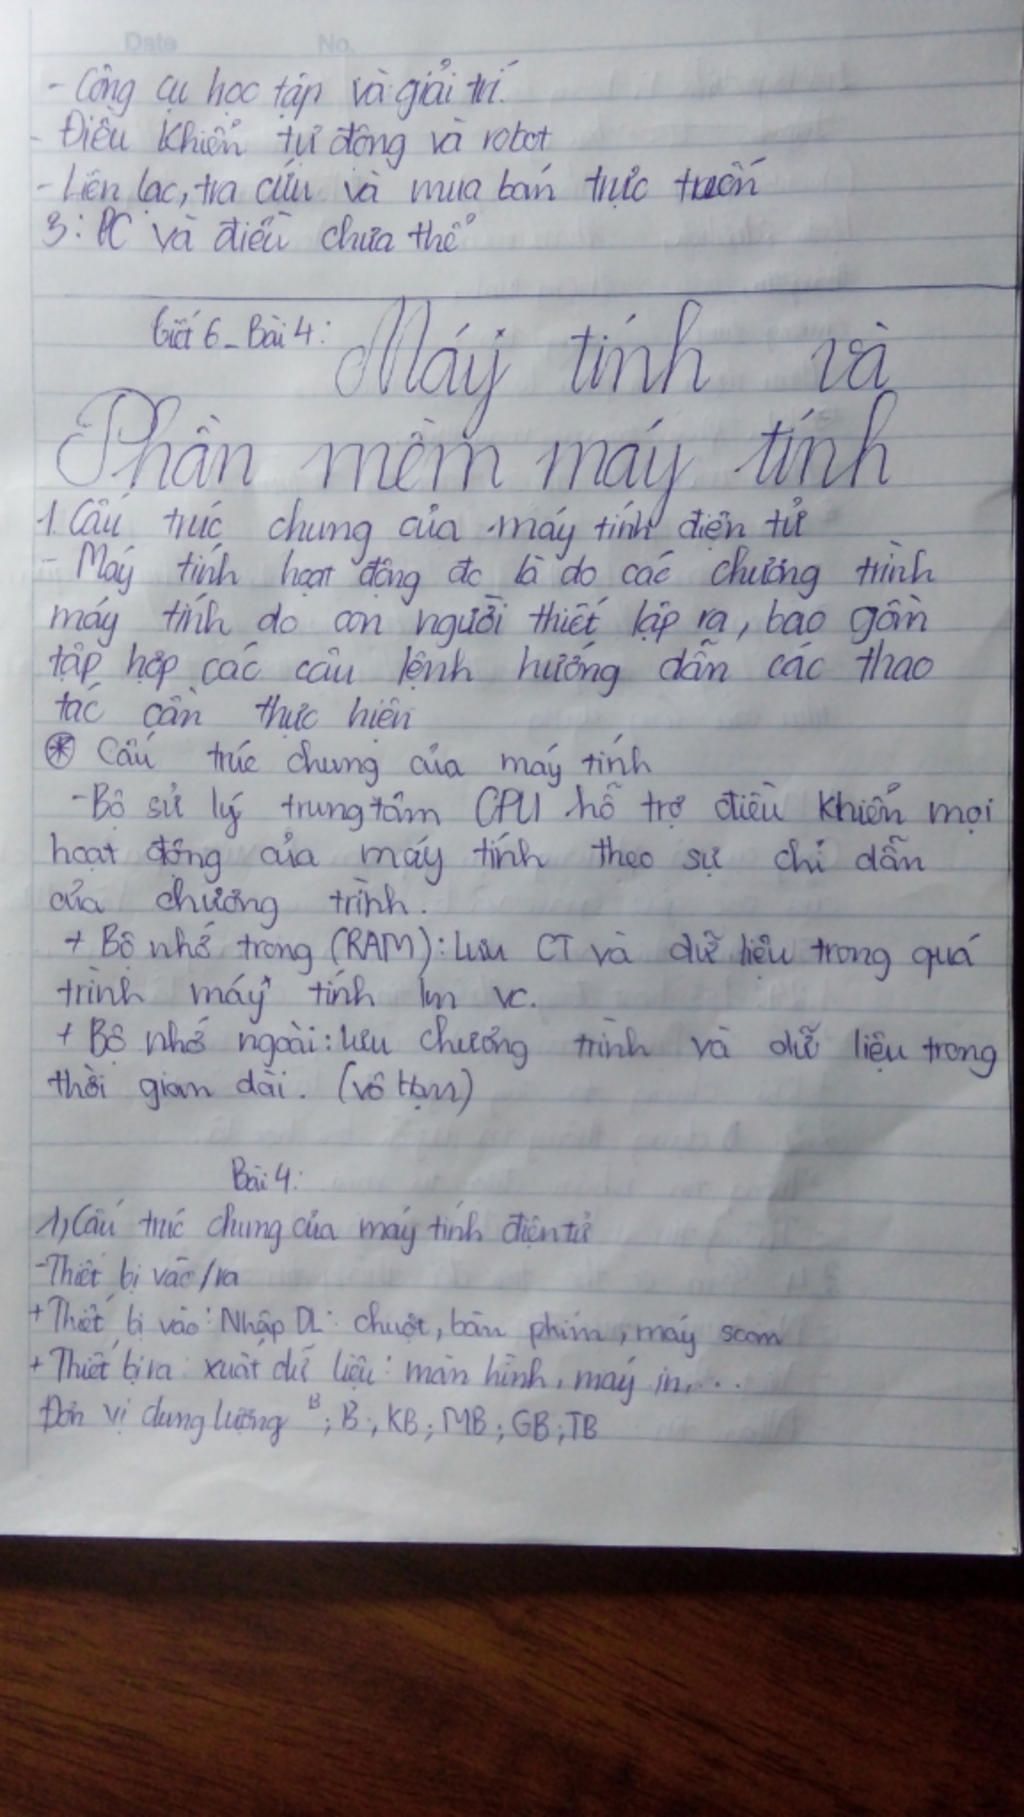 Date No.
- Công cụ học tập và giải trí.
- Điều khiển tự động và robot
- Liên lạc, tra cứu và mua bán trực tuến
3: PC và điều chưa thể
Tiết 6 - Bài 4: Máy tính và
Phần mềm máy tính
1. Cấu trúc chung của máy tính điện tử
- Máy tính hoạt động đc là do các chương trình
máy tính do con người thiết lập ra, bao gồm
tập hợp các câu lệnh hướng dẫn các thao
tác cần thực hiện
* Cấu trúc chung của máy tính
- Bộ sử lý trung tâm CPU hỗ trợ điều khiển mọi
hoạt động của máy tính theo sự chỉ dẫn
của chương trình.
+ Bộ nhớ trong (RAM): lưu CT và dữ liệu trong quá
trình máy tính lm vc.
+ Bộ nhớ ngoài: lưu chương trình và dữ liệu trong
thời gian dài. (vô hạn)
Bài 4:
1, Cấu trúc chung của máy tính điện tử
- Thiết bị vào/ra
+ Thiết bị vào: Nhập DL: chuột, bàn phím, máy scam
+ Thiết bị ra: xuất dữ liệu: màn hình, máy in,...
Đơn vị dung lượng B; B; KB; MB; GB; TB